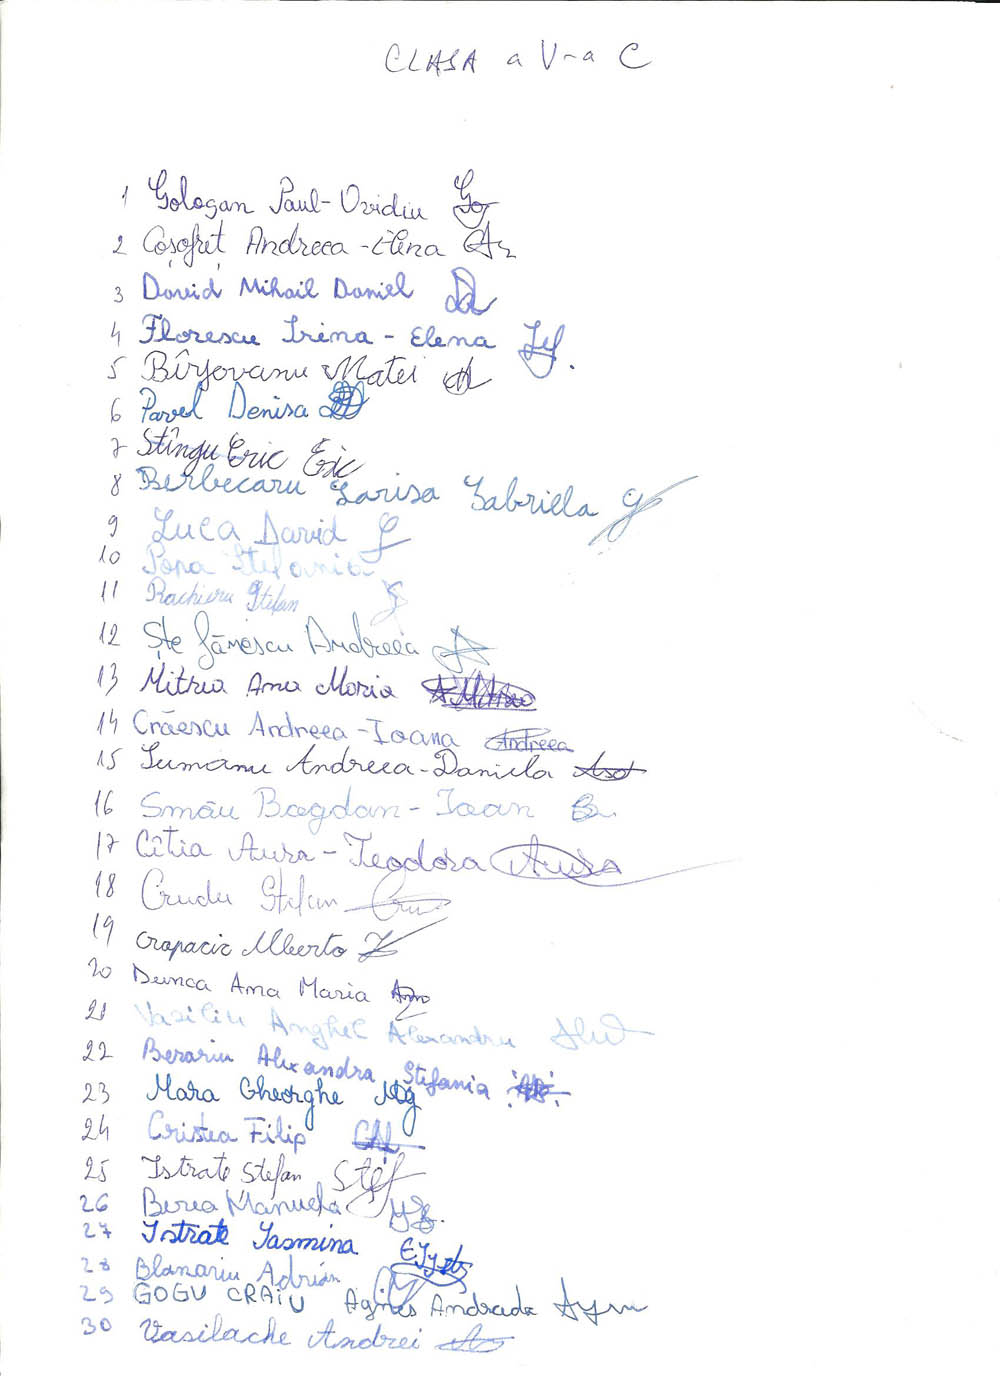 CLASA a V-a C
1 Gologan Paul-Ovidiu Go
2 Coșofreț Andreea-Elena
3 David Mihail Daniel
4 Florescu Irina-Elena
5 Bîrjovanu Matei
6 Pavel Denisa
7 Stîngu Eric Eric
8 Berbecaru Larisa Gabriela
9 Luca David
10 Popa Ștefania
11 Rachieru Ștefan
12 Ștefănescu Andreea
13 Mitrea Ana Maria
14 Crăescu Andreea-Ioana Andreea
15 Sumanu Andreea-Daniela
16 Smău Bogdan-Ioan
17 Cîtia Aura-Teodora Aura
18 Crudu Stefan
19 Crapacic Alberto
20 Dunca Ana Maria
21 Vasiliu Anghel Alexandru
22 Berariu Alexandra Ștefania
23 Mara Gheorghe Mg
24 Cristea Filip
25 Istrate Stefan Stef
26 Berea Manuela
27 Istrate Iasmina
28 Blanariu Adrian
29 GOGU CRAiU Agnes Andrada
30 Vasilache Andrei